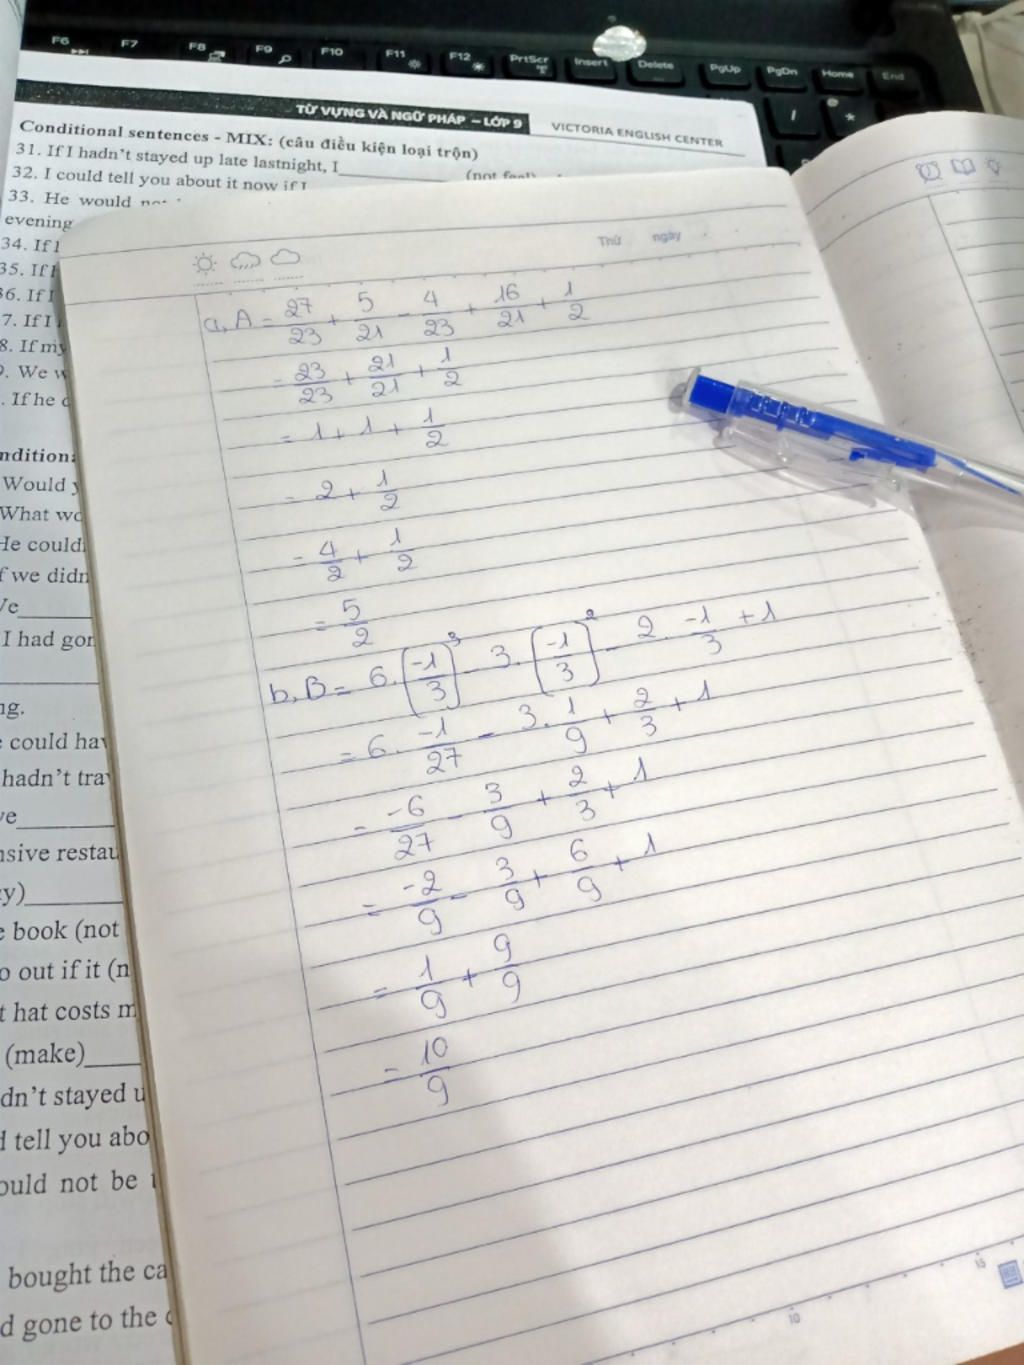 F6 F7 F8 F9 F10 F11 F12 PrtScr Insert Delete PgUp PgDn Home End
/ *
TỪ VỰNG VÀ NGỮ PHÁP – LỚP 9 VICTORIA ENGLISH CENTER
Conditional sentences - MIX: (câu điều kiện loại trộn)
31. If I hadn't stayed up late lastnight, I__________ (not feel)
32. I could tell you about it now if I
33. He would not
evening
34. If I
35. If
36. If I
7. If I
8. If my
9. We w
. If he
nditiona
Would y
What wo
He could
f we didn
Ve____
I had gon
ng.
e could hav
hadn't trav
ve____
nsive restau
y)____
e book (not
o out if it (n
t hat costs m
(make)____
dn't stayed u
d tell you abo
ould not be
bought the ca
d gone to the
Thứ ngày
a, A = 27/23 + 5/21 - 4/23 + 16/21 + 1/2
= 23/23 + 21/21 + 1/2
= 1 + 1 + 1/2
= 2 + 1/2
= 4/2 + 1/2
= 5/2
b, B = 6.(-1/3)³ - 3.(-1/3)² - 2. -1/3 + 1
= 6. -1/27 - 3. 1/9 + 2/3 + 1
= -6/27 - 3/9 + 2/3 + 1
= -2/9 - 3/9 + 6/9 + 1
= 1/9 + 9/9
= 10/9
10 15